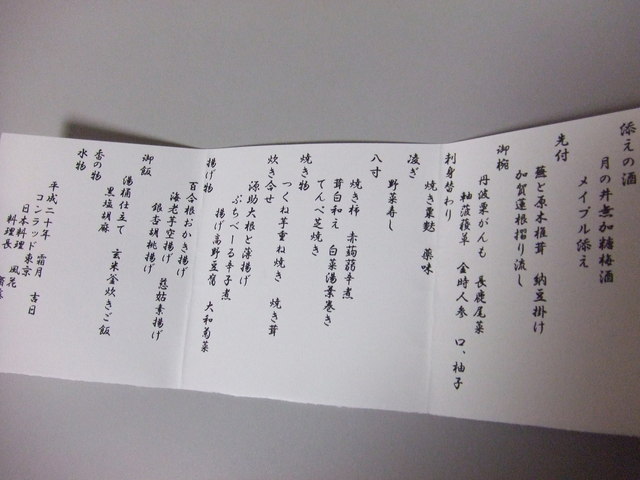 添えの酒
月の井無加糖梅酒
メイプル添え
先付
蕪と原木椎茸 納豆掛け
加賀蓮根摺り流し
御椀
丹波栗がんも 長鹿尾菜
軸菠薐草 金時人参 口、柚子
刺身替わり
焼き粟麩 薬味
凌ぎ
野菜寿し
八寸
焼き柿 赤蒟蒻辛煮
茸白和え 白菜湯葉巻き
てんぺ芝焼き
焼き物
つくね芋重ね焼き 焼き茸
炊き合せ
源助大根と薄揚げ
ぷちべーる辛子煮
揚げ高野豆腐 大和菊菜
揚げ物
百合根おかき揚げ
海老芋空揚げ 慈姑素揚げ
銀杏胡桃揚げ
御飯
湯桶仕立て 玄米釜炊きご飯
黒塩胡麻
香の物
水物
平成二十年 霜月 吉日
コンラッド東京
日本料理 風花
料理長